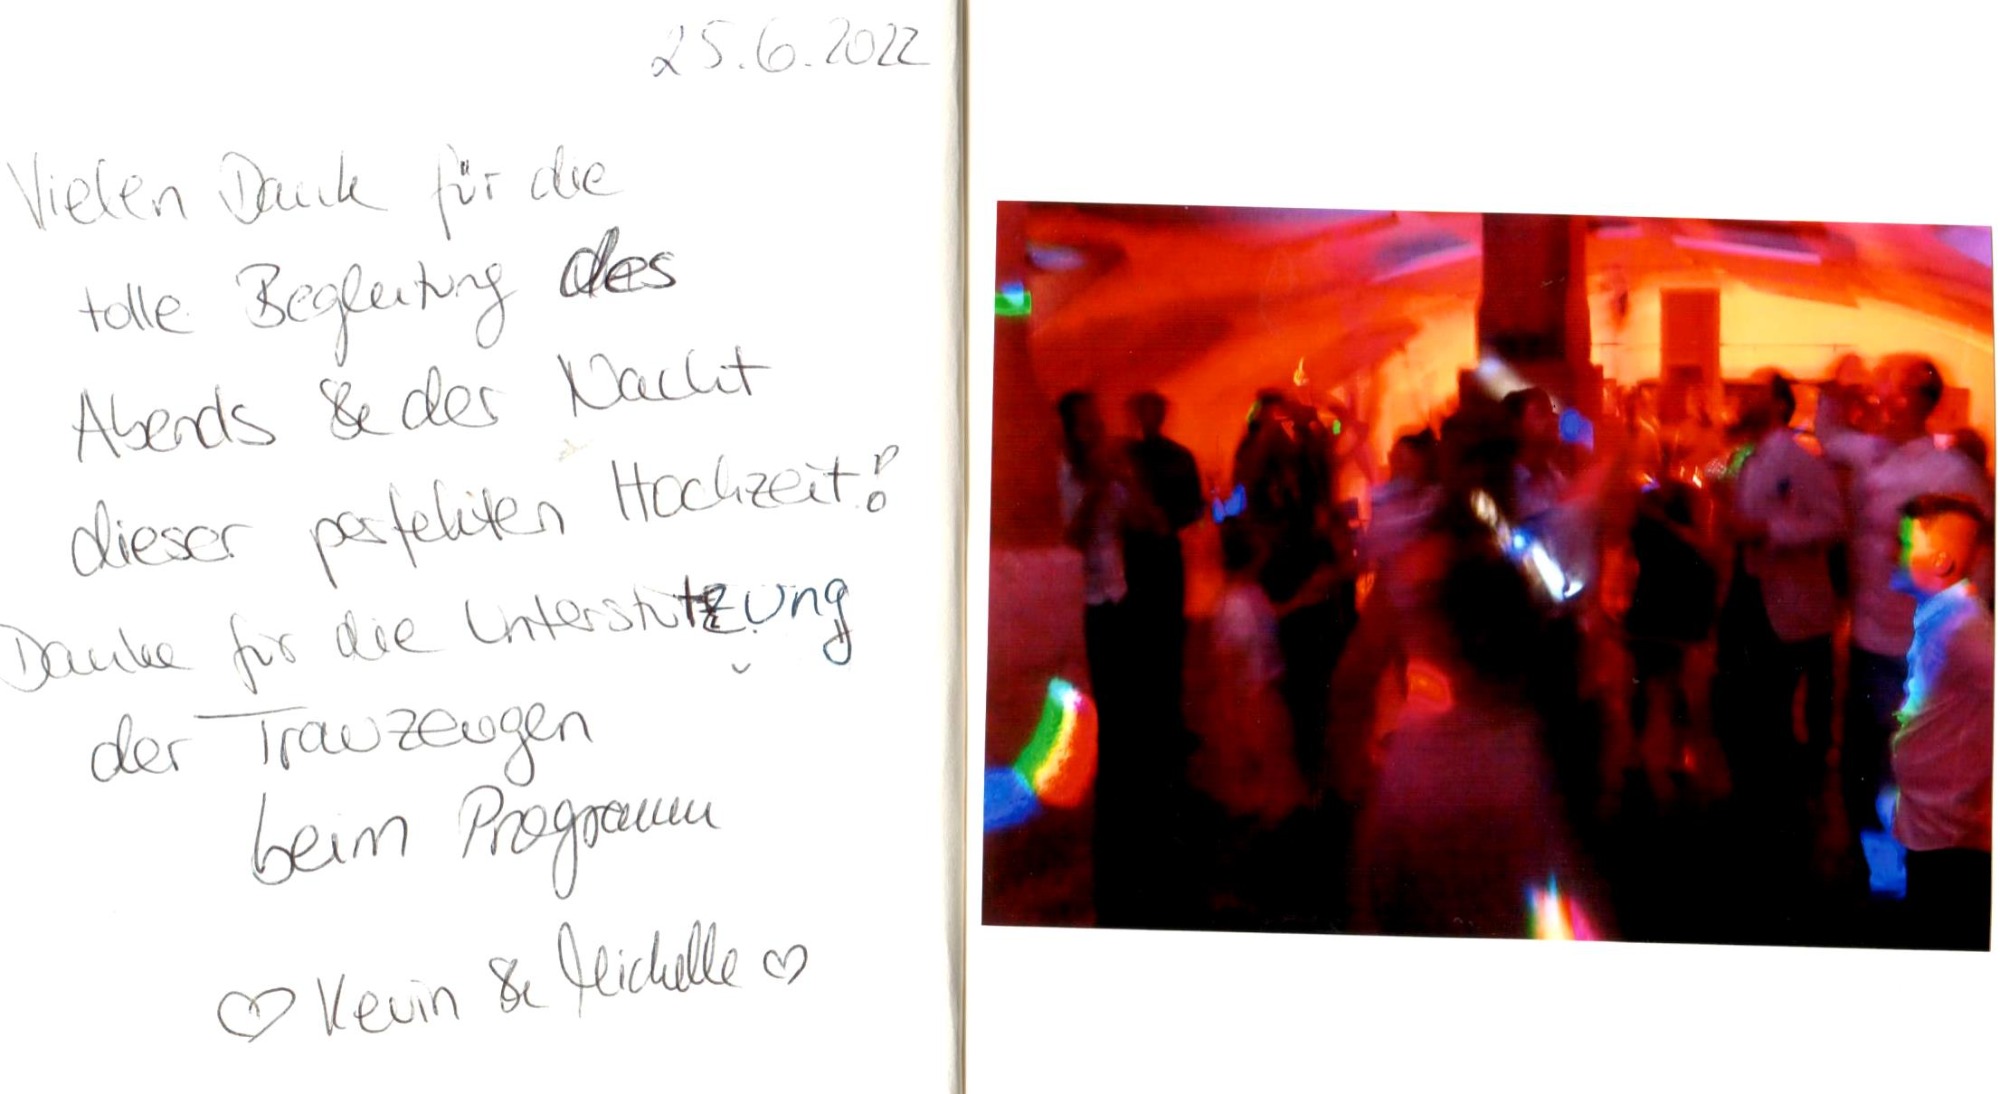 25.6.2022
Vielen Dank für die
tolle Begleitung des
Abends & der Nacht
dieser perfekten Hochzeit!
Danke für die Unterstützung
der Trauzeugen
beim Programm
♡ Kevin & Michelle ♡